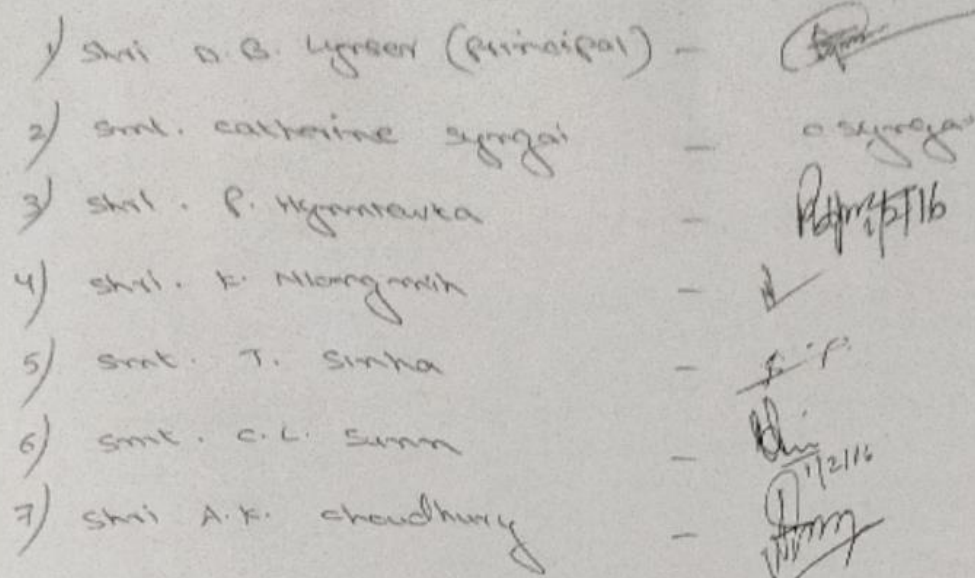 1) Shri D. B. Lyreer (Principal) -
2) Smt. Catherine Syngai - C Syngai
3) Shri. P. Hynniewta -
4) Shri. K. Nongmin -
5) Smt. T. Sinha -
6) Smt. C.L. Sunn - 1/2/16
7) Shri A.K. Choudhury -